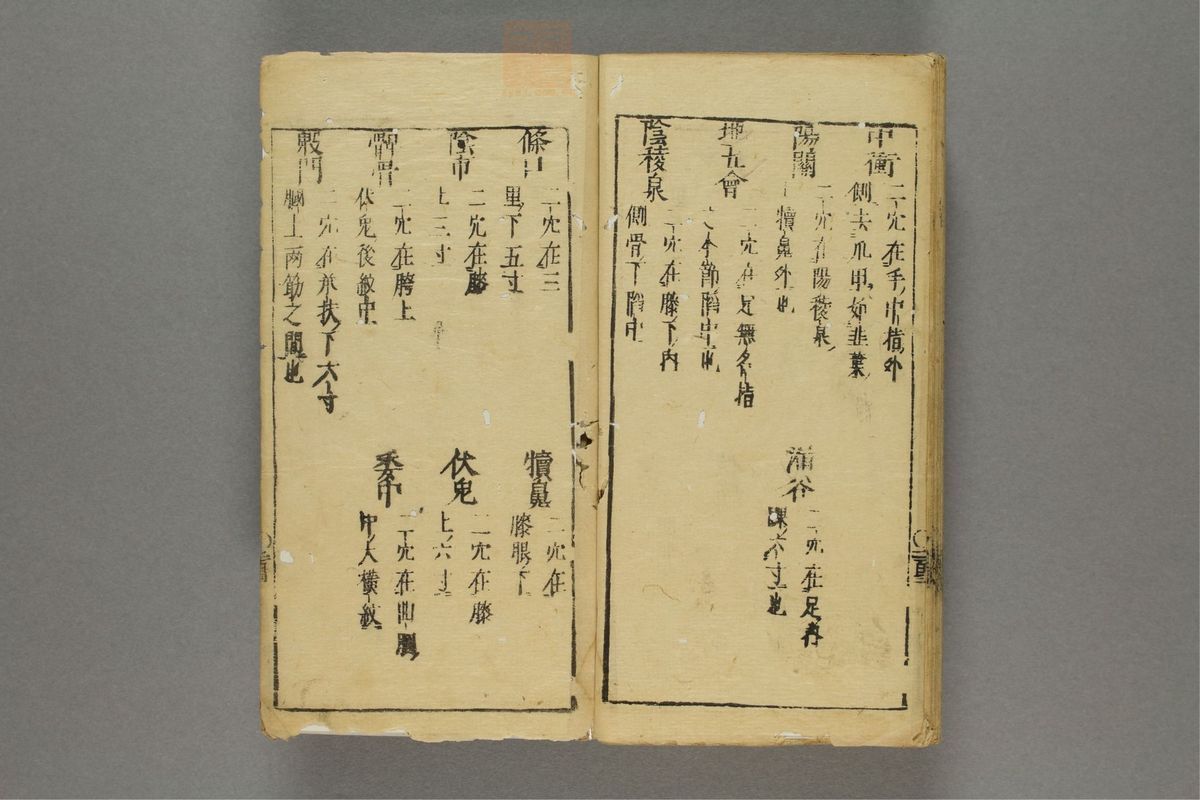 中衝
二穴在手中指外
側去爪甲如韭葉
陽關
二穴在陽稜泉
犢鼻外也
漏谷
二穴在足內
踝六寸也
地五會
二穴在足無名指
本節陷中也
陰稜泉
二穴在膝下內
側骨下陷中
條口
二穴在三
里下五寸
犢鼻
二穴在
膝眼下
陰市
二穴在膝
上三寸
伏兔
二穴在膝
上六寸
髀關
二穴在胯上
伏兔後紋中
委中
二穴在曲䐐
中大橫紋
殷門
二穴在承扶下六寸
膕上兩筋之間也